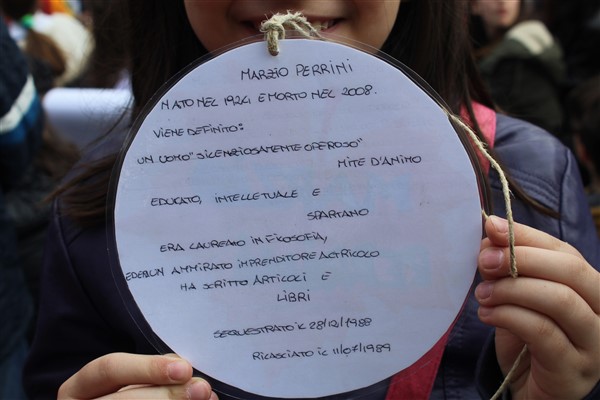 MARZIO PERRINI
NATO NEL 1924 E MORTO NEL 2008.
VIENE DEFINITO:
UN UOMO "SILENZIOSAMENTE OPEROSO"
MITE D'ANIMO
EDUCATO, INTELLETUALE E
SPARTANO
ERA LAUREATO IN FILOSOFIA,
ED ERA UN AMMIRATO IMPRENDITORE AGRICOLO
HA SCRITTO ARTICOLI E
LIBRI
SEQUESTRATO IL 28/12/1988
RILASCIATO IL 11/07/1989